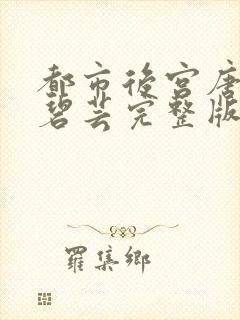 都市後宮唐
碧芸完整版
羅集鄉